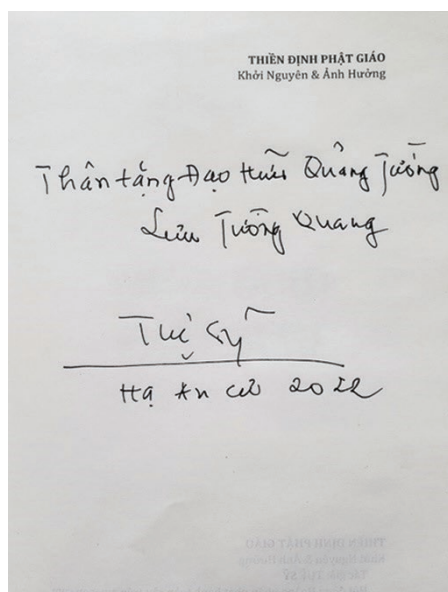 THIỀN ĐỊNH PHẬT GIÁO
Khởi Nguyên & Ảnh Hưởng
Thân tặng Đạo Hữu Quảng Tường
Lưu Tường Quang
Tuệ Sỹ
Hạ An cư 2022